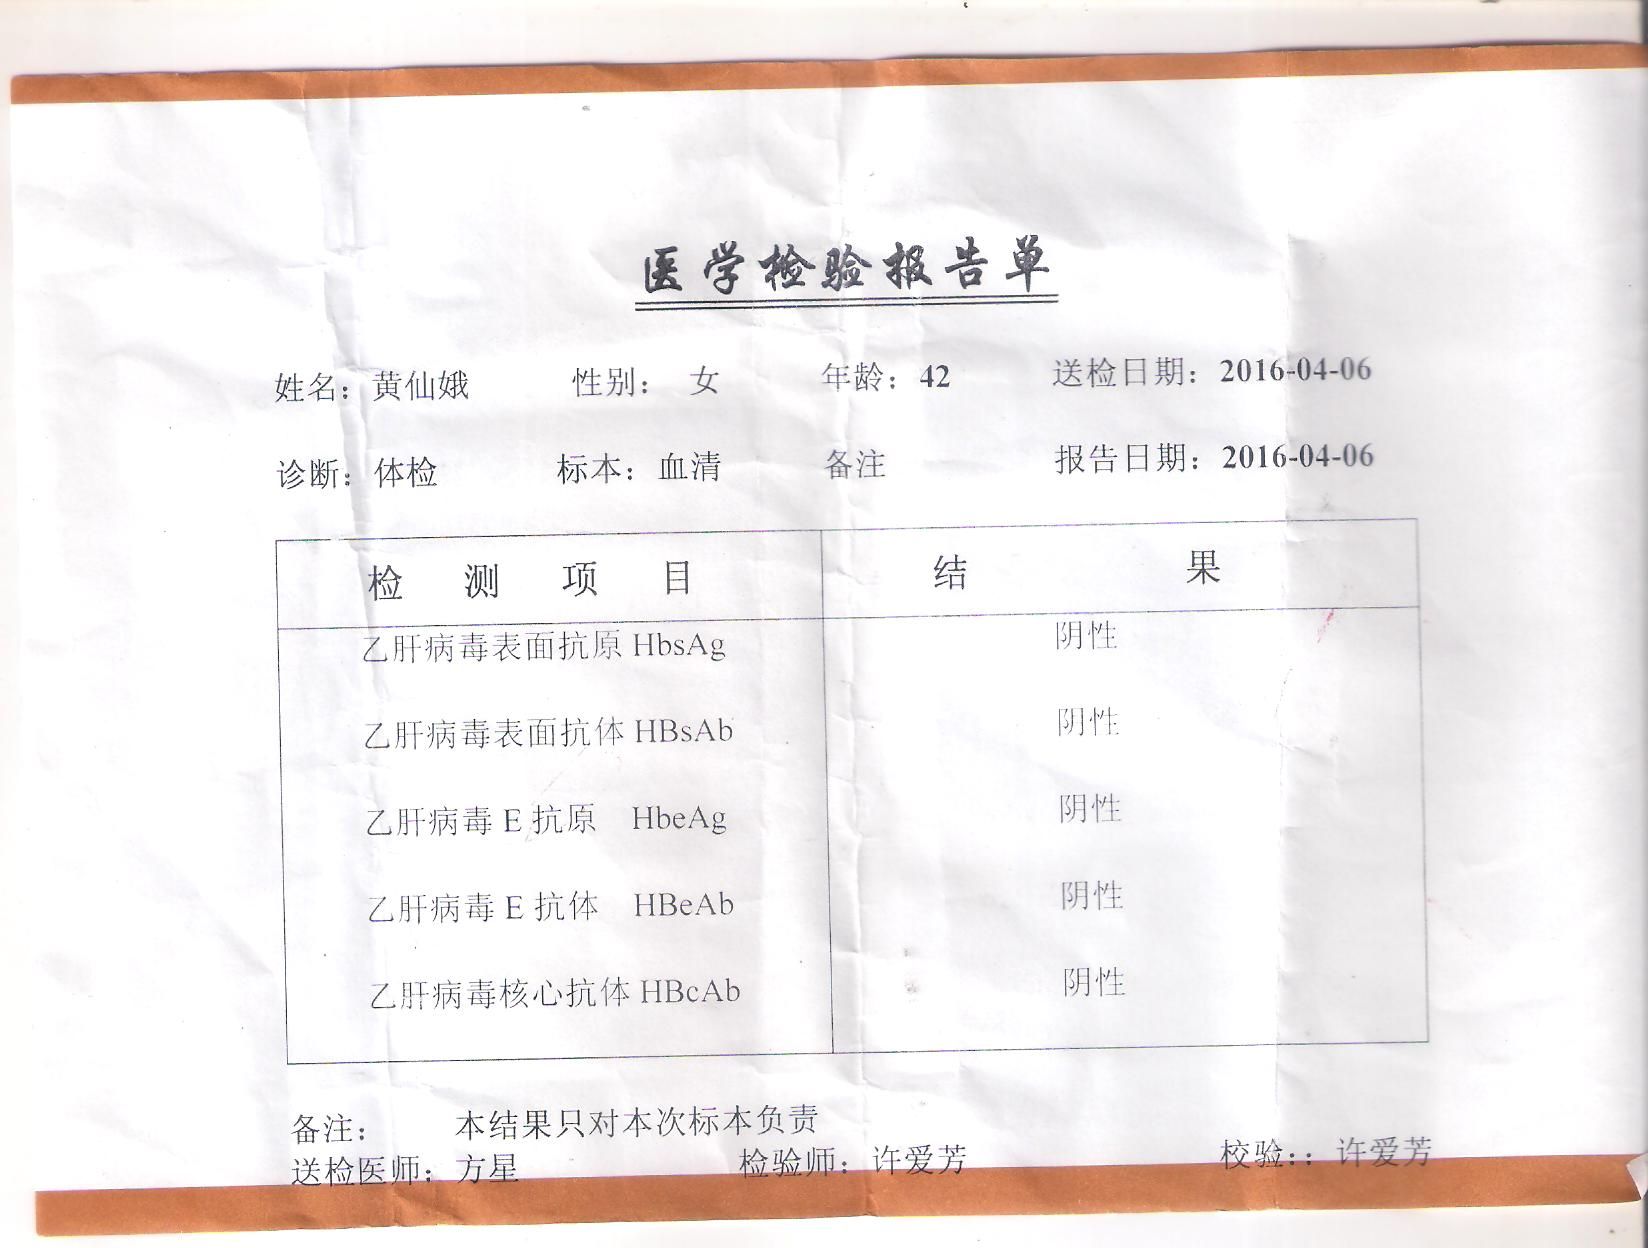 医学检验报告单
姓名：黄仙娥 性别： 女 年龄：42 送检日期：2016-04-06
诊断：体检 标本：血清 备注 报告日期：2016-04-06
检 测 项 目 结 果
乙肝病毒表面抗原 HbsAg 阴性
乙肝病毒表面抗体 HBsAb 阴性
乙肝病毒 E 抗原 HbeAg 阴性
乙肝病毒 E 抗体 HBeAb 阴性
乙肝病毒核心抗体 HBcAb 阴性
备注： 本结果只对本次标本负责
送检医师：方星 检验师：许爱芳 校验：：许爱芳